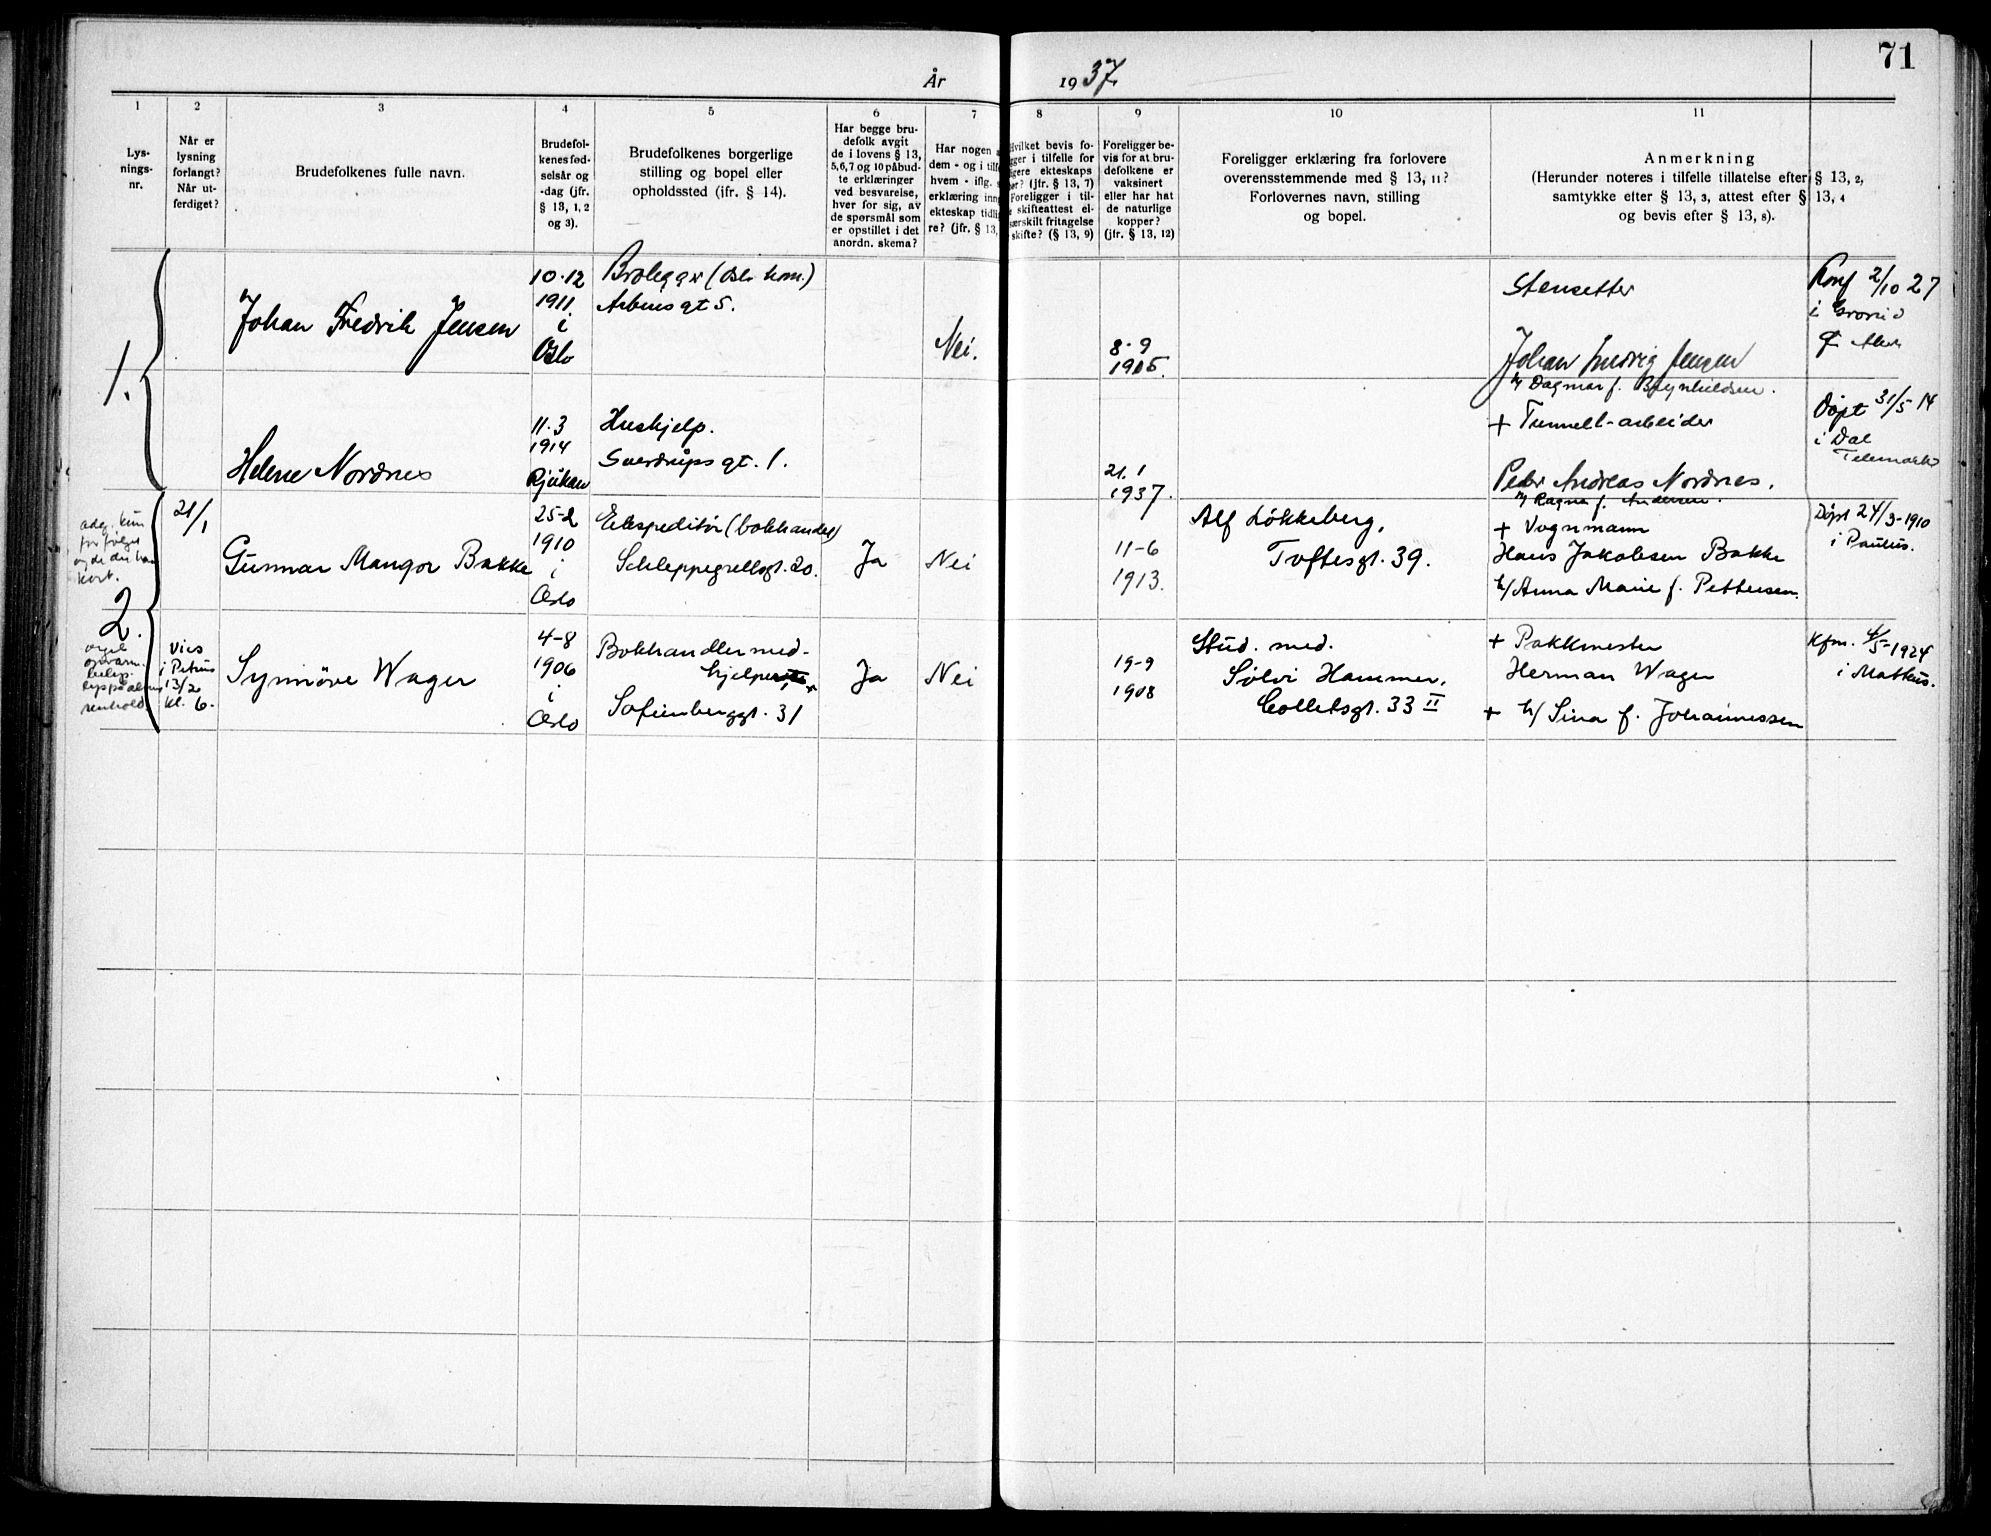 71
År 1937.
1 2 3 4 5 6 7 8 9 10 11
Lys-
nings-
nr.
Når er
lysning
forlangt?
Når ut-
ferdiget?
Brudefolkenes fulle navn.
Brudefol-
kenes fød-
selsår og
-dag (jfr.
§ 13, 1, 2
og 3).
Brudefolkenes borgerlige
stilling og bopel eller
opholdssted (ifr. § 14).
Har begge bru-
defolk avgit
de i lovens § 13,
5, 6, 7 og 10 påbud-
te erklæringer
ved besvarelse,
hver for sig, av
de spørsmål som
er opstillet i det
anordn. skema?
Har nogen
dem - og i
hvem - iflg.
erklæring
ekteskap
re? (jfr. § 13,
Hvilket bevis fo-
i tilfelle for
ekteskaps
(jfr. § 13, 7)
Foreligger i til-
skifteattest el-
særskilt fritagelse
skifte? (§ 13, 9)
Foreligger be-
vis for at bru-
defolkene er
vaksinert
eller har hat
de naturlige
kopper?
(jfr. § 13, 12)
Foreligger erklæring fra forlovere
overensstemmende med § 13, 11?
Forlovernes navn, stilling
og bopel.
Anmerkning
(Herunder noteres i tilfelle tillatelse efter § 13, 2,
samtykke efter § 13, 3, attest efter § 13, 4
og bevis efter § 13, 8).
1.
Johan Fredrik Jensen
10-12
1911.
i
Oslo
Brolegger (Oslo kom.)
gt 5.
Nei.
8-9
Stensetter
Johan Jensen
h/ Dagmar f. Brynhildsen.
Konf 2/10 27
i Grorud
Helene Nordnes
11-3
1914
Rjukan
Huskjelp.
Sverdrups gt. 1.
21.1
1937.
+ Tunnell-arbeider
Peder Andreas Nordnes.
h/ Ragna f. Andersen.
Døpt 31/5 14
i Dal
Telemark
2.
21/1
Gunnar Mangor Bakke
25-2
1910
i
Oslo
Ekspeditör (bokhandel)
Schleppegrellsgt. 20.
Ja
Nei
11-6
1913.
Alf Lökkeberg,
Toftesgt. 39.
+ Vognmann
Hans Jakobsen Bakke
h/ Anna Marie f. Pettersen.
Döpt 24/3-1910
i Paulus.
Vies
i Petrus
13/2
kl. 6.
Synnöve Wager
4-8
1906
i
Oslo
Bokhandlermed-
hjelper
Sofienberggt. 31
Ja
Nei
19-9
1908
Stud. med.
Sölvi Hammer,
Colletsgt. 33 II
+ Pakkmester
Herman Wager
+ h/ Sina f. Johannessen
Kfm. 4/5-1924
i Matteus.